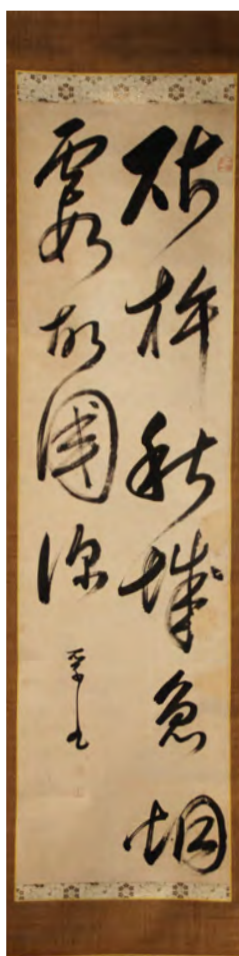 砧杵秋城急烟
霞故園深